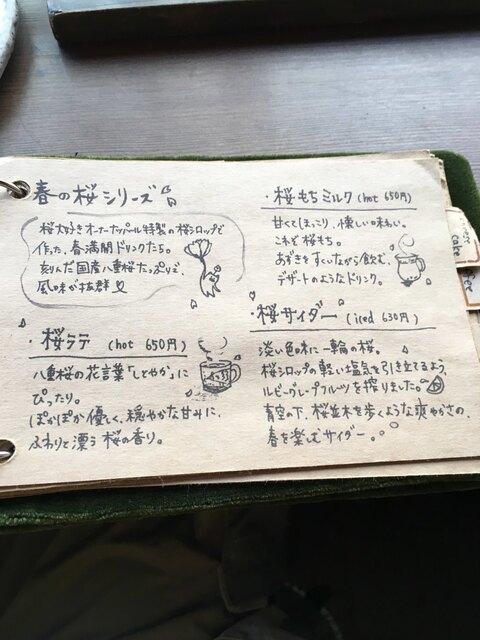 春の桜シリーズ
桜大好きオーナーカップル特製の桜シロップで
作った、春満開ドリンクたち。
刻んだ国産八重桜たっぷりで、
風味が抜群♡
・桜ラテ (hot 650円)
八重桜の花言葉「しとやか」に
ぴったり。
ぽかぽか優しく、穏やかな甘みに、
ふわりと漂う桜の香り。
・桜もちミルク (hot 650円)
甘くてほっこり、懐しい味わい。
これぞ桜もち。
あずきをすくいながら飲む、
デザートのようなドリンク。
・桜サイダー (iced 630円)
淡い色味に一輪の桜。
桜シロップの軽い塩気を引き立てるよう、
ルビーグレープフルーツを搾りました
青空の下、桜並木を歩くような爽やかさの、
春を楽しむサイダー。
cafe